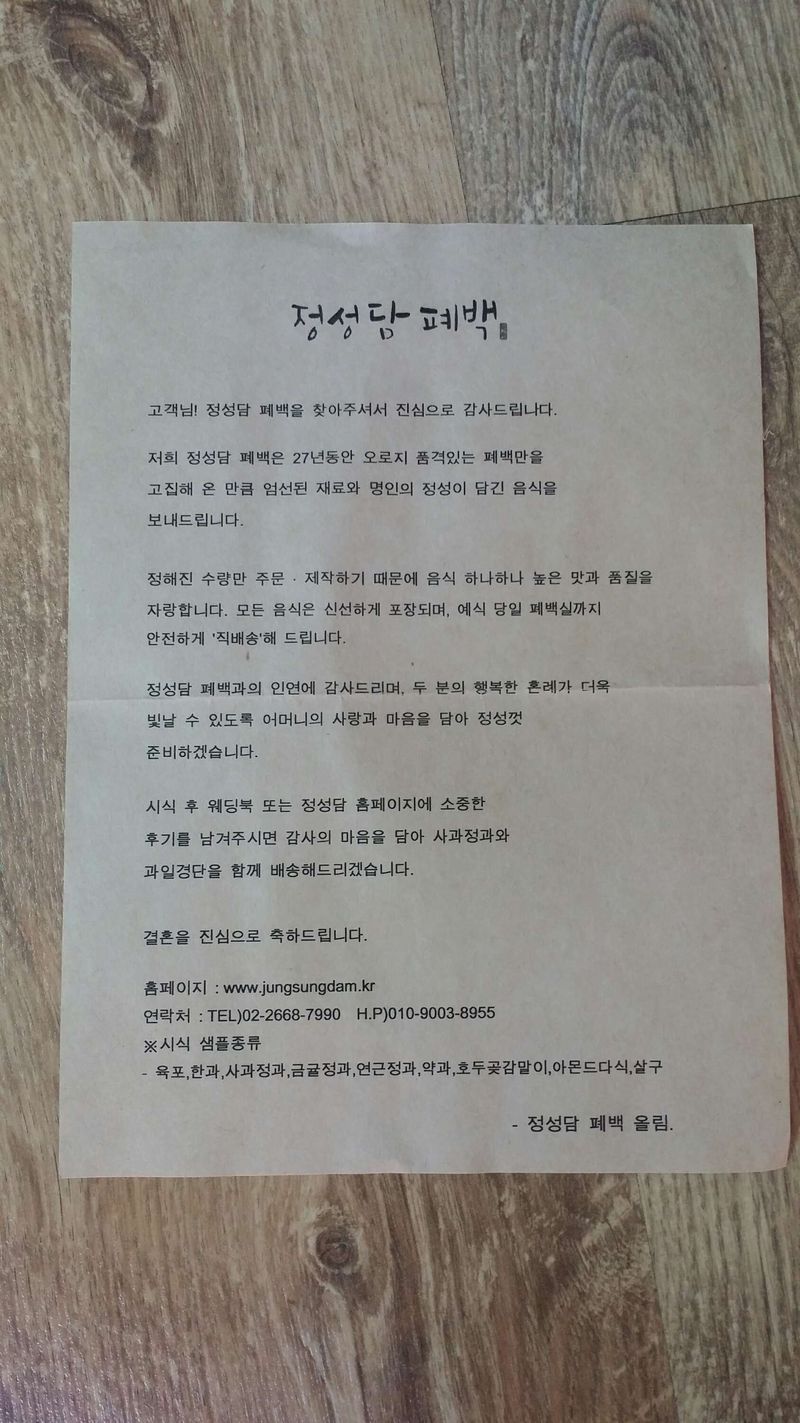 정성담 폐백
고객님! 정성담 폐백을 찾아주셔서 진심으로 감사드립니다.
저희 정성담 폐백은 27년동안 오로지 품격있는 폐백만을
고집해 온 만큼 엄선된 재료와 명인의 정성이 담긴 음식을
보내드립니다.
정해진 수량만 주문 · 제작하기 때문에 음식 하나하나 높은 맛과 품질을
자랑합니다. 모든 음식은 신선하게 포장되며, 예식 당일 폐백실까지
안전하게 '직배송'해 드립니다.
정성담 폐백과의 인연에 감사드리며, 두 분의 행복한 혼례가 더욱
빛날 수 있도록 어머니의 사랑과 마음을 담아 정성껏
준비하겠습니다.
시식 후 웨딩북 또는 정성담 홈페이지에 소중한
후기를 남겨주시면 감사의 마음을 담아 사과정과와
과일경단을 함께 배송해드리겠습니다.
결혼을 진심으로 축하드립니다.
홈페이지 : www.jungsungdam.kr
연락처 : TEL)02-2668-7990 H.P)010-9003-8955
※시식 샘플종류
- 육포,한과,사과정과,금귤정과,연근정과,약과,호두곶감말이,아몬드다식,살구
- 정성담 폐백 올림.